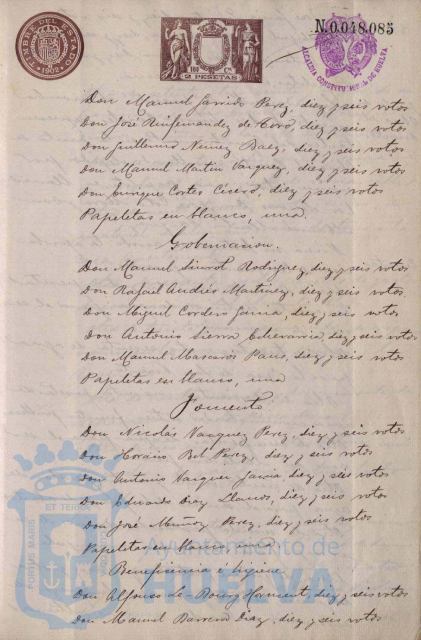 TIMBRE DEL ESTADO
1902
2 PESETAS
N.0.048.085
ALCALDIA CONSTITUCIONAL DE HUELVA
Don Manuel Garrido Perez, diez y seis votos
Don José Ruifernandez de Toro, diez y seis votos
Don Guillermo Nuñez Baez, diez y seis votos
Don Manuel Martin Vazquez, diez y seis votos
Don Enrique Cortes, diez y seis votos
Papeletas en blanco, una.
Gobernacion.
Don Manuel Siurot Rodriguez, diez y seis votos
Don Rafael Andrés Martinez, diez y seis votos
Don Miguel Cordero Garcia, diez y seis votos
Don Antonio Sierra Echevarria, diez y seis votos
Don Manuel Mascarós, diez y seis votos
Papeletas en blanco, una
Fomento
Don Nicolás Vazquez Perez, diez y seis votos
Don Horacio Bel Perez, diez y seis votos
Don Antonio Vazquez Garcia, diez y seis votos
Don Eduardo Diaz Llanos, diez y seis votos
Don José Muñoz Perez, diez y seis votos
Papeletas en blanco, una
Beneficencia é higiene
Don Alfonso Le-Bourg, diez y seis votos
Don Manuel Barrera Diaz, diez y seis votos
PORTUS MARIS
ET TERRAE
Ayuntamiento de
HUELVA